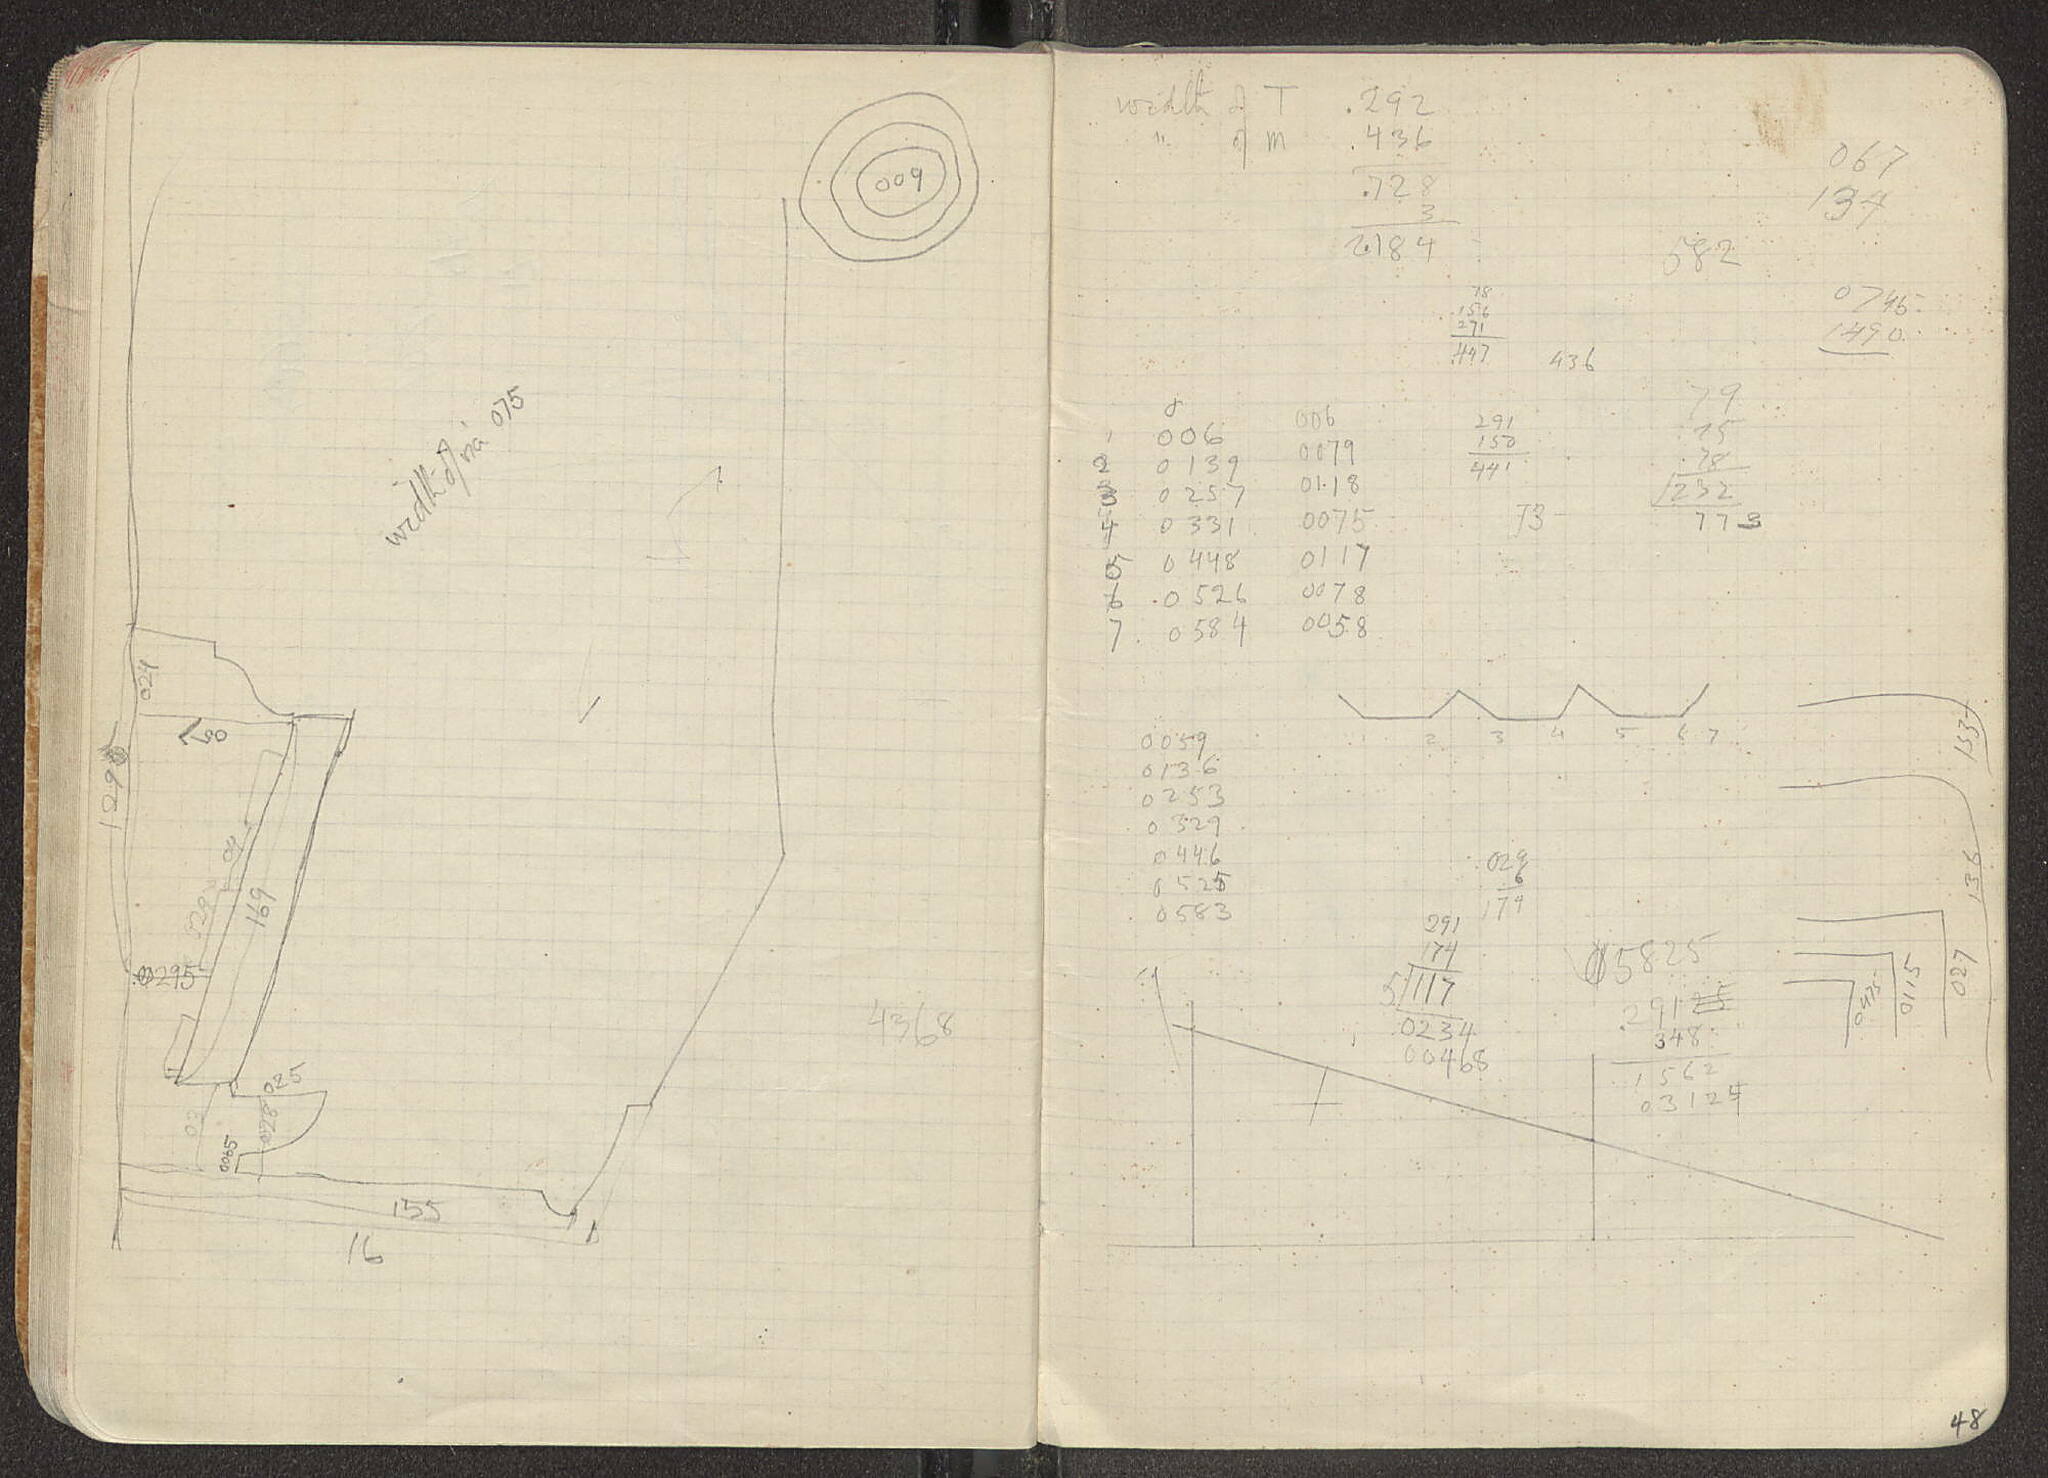 009
width of via 075
024
057
1298
04
029
169
0295
025
02
028
0065
155
16
4368
width of T .292
" of m .436
.728
3
2.184
067
134
582
78
156
271
.447
436
0745
1490
1 006 006
2 0139 0079
3 0257 0118
4 0331 0075
5 0448 0117
6 .0526 0078
7 0584 0058
291
150
441
73
79
75
78
232
773
1 2 3 4 5 6 7
0059
0136
0253
0329
0446
0525
0583
029
6
174
291
174
5/117
.0234
00468
05825
.29125
348
1562
03124
1534
136
027
0115
0475
48